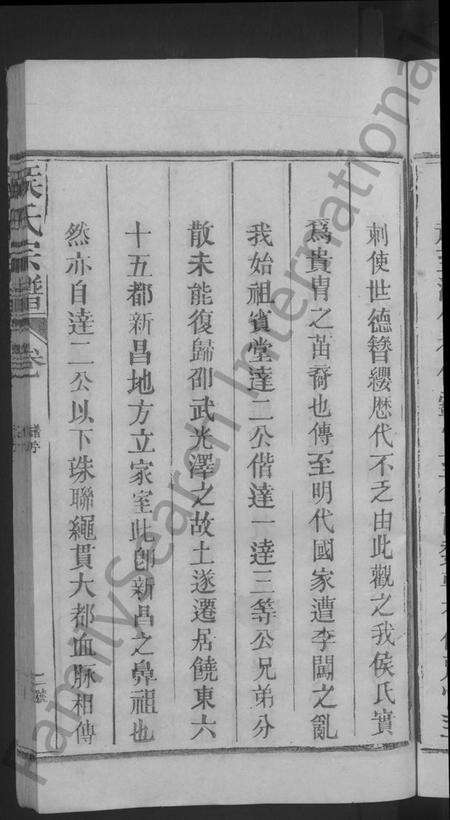 刺使世德簪纓歷代不乏由此觀之我侯氏實
爲貴冑之苗裔也傳至明代國家遭李闖之亂
我始祖賓堂達二公偕達一達三等公兄弟分
散未能復歸邵武光澤之故土遂遷居饒東六
十五都新昌地方立家室此卽新昌之鼻祖也
然亦自達二公以下珠聯繩貫大都血脉相傳
侯氏宗譜
卷
FamilySearch International